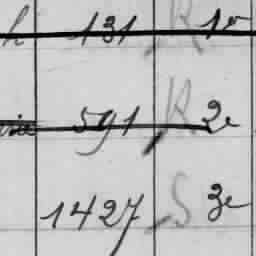 h 131 R 1e
591 R 2e
1427 S 3e